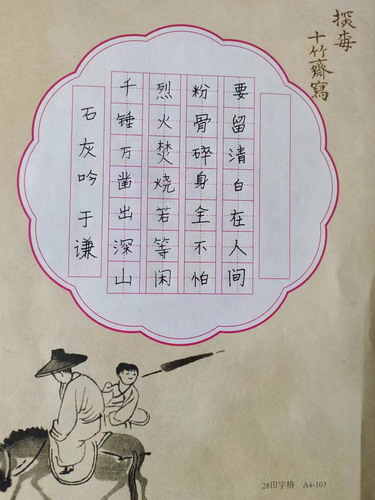 石灰吟 于谦
千锤万凿出深山
烈火焚烧若等闲
粉骨碎身全不怕
要留清白在人间
十竹齋寫
28田字格 A4-103